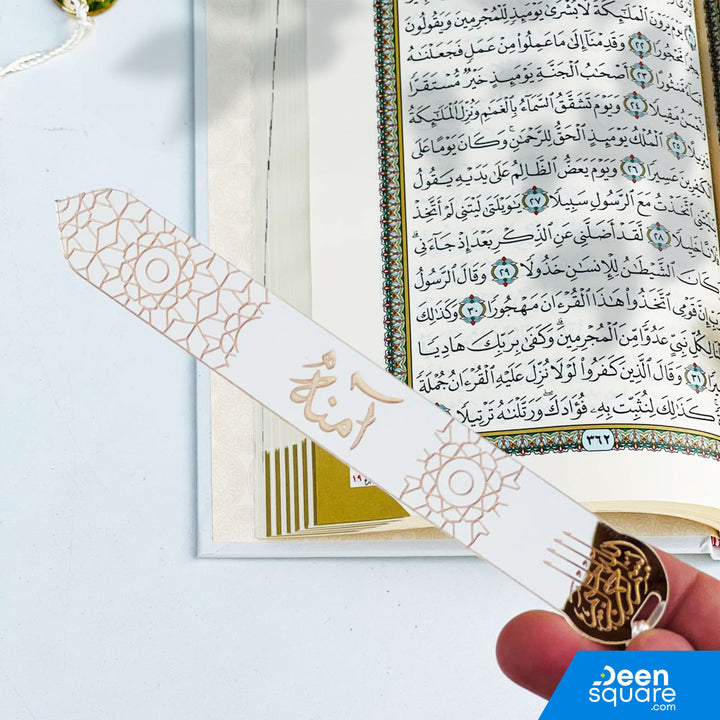 يَوْمَ يَرَوْنَ ٱلْمَلَٰٓئِكَةَ لَا بُشْرَىٰ يَوْمَئِذٍ لِّلْمُجْرِمِينَ وَيَقُولُونَ
مَّحْجُورًا ٢٢ وَقَدِمْنَآ إِلَىٰ مَا عَمِلُوا۟ مِنْ عَمَلٍ فَجَعَلْنَٰهُ
هَبَآءً مَّنثُورًا ٢٣ أَصْحَٰبُ ٱلْجَنَّةِ يَوْمَئِذٍ خَيْرٌ مُّسْتَقَرًّا
وَأَحْسَنُ مَقِيلًا ٢٤ وَيَوْمَ تَشَقَّقُ ٱلسَّمَآءُ بِٱلْغَمَٰمِ وَنُزِّلَ ٱلْمَلَٰٓئِكَةُ
تَنزِيلًا ٢٥ ٱلْمُلْكُ يَوْمَئِذٍ ٱلْحَقُّ لِلرَّحْمَٰنِ ۚ وَكَانَ يَوْمًا عَلَى
ٱلْكَٰفِرِينَ عَسِيرًا ٢٦ وَيَوْمَ يَعَضُّ ٱلظَّالِمُ عَلَىٰ يَدَيْهِ يَقُولُ
يَٰلَيْتَنِى ٱتَّخَذْتُ مَعَ ٱلرَّسُولِ سَبِيلًا ٢٧ يَٰوَيْلَتَىٰ لَيْتَنِى لَمْ أَتَّخِذْ
فُلَانًا خَلِيلًا ٢٨ لَّقَدْ أَضَلَّنِى عَنِ ٱلذِّكْرِ بَعْدَ إِذْ جَآءَنِى ۗ
وَكَانَ ٱلشَّيْطَٰنُ لِلْإِنسَٰنِ خَذُولًا ٢٩ وَقَالَ ٱلرَّسُولُ
يَٰرَبِّ إِنَّ قَوْمِى ٱتَّخَذُوا۟ هَٰذَا ٱلْقُرْءَانَ مَهْجُورًا ٣٠ وَكَذَٰلِكَ
جَعَلْنَا لِكُلِّ نَبِىٍّ عَدُوًّا مِّنَ ٱلْمُجْرِمِينَ ۗ وَكَفَىٰ بِرَبِّكَ هَادِيًا
وَنَصِيرًا ٣١ وَقَالَ ٱلَّذِينَ كَفَرُوا۟ لَوْلَا نُزِّلَ عَلَيْهِ ٱلْقُرْءَانُ جُمْلَةً
كَذَٰلِكَ لِنُثَبِّتَ بِهِۦ فُؤَادَكَ ۖ وَرَتَّلْنَٰهُ تَرْتِيلًا
٣٦٢
آمنةُ
Deen
square
.com